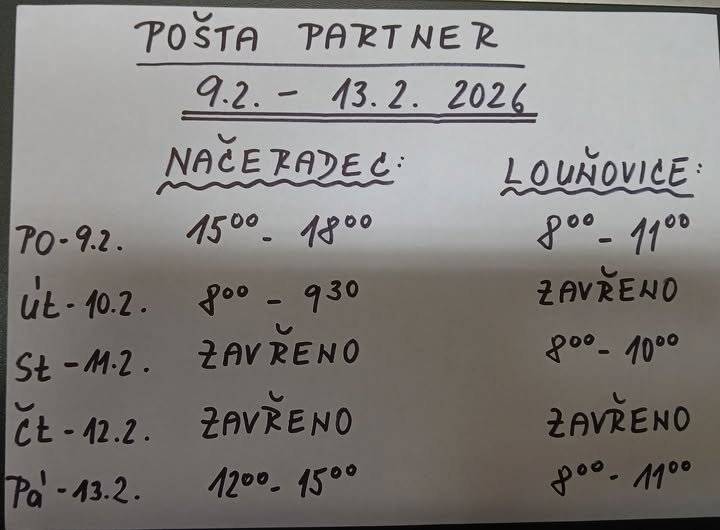 POŠTA PARTNER
9.2. - 13.2. 2026
NAČERADEC: LOUŇOVICE:
PO - 9.2. 15⁰⁰ - 18⁰⁰ 8⁰⁰ - 11⁰⁰
Út - 10.2. 8⁰⁰ - 9³⁰ ZAVŘENO
St - 11.2. ZAVŘENO 8⁰⁰ - 10⁰⁰
Čt - 12.2. ZAVŘENO ZAVŘENO
Pá - 13.2. 12⁰⁰ - 15⁰⁰ 8⁰⁰ - 11⁰⁰